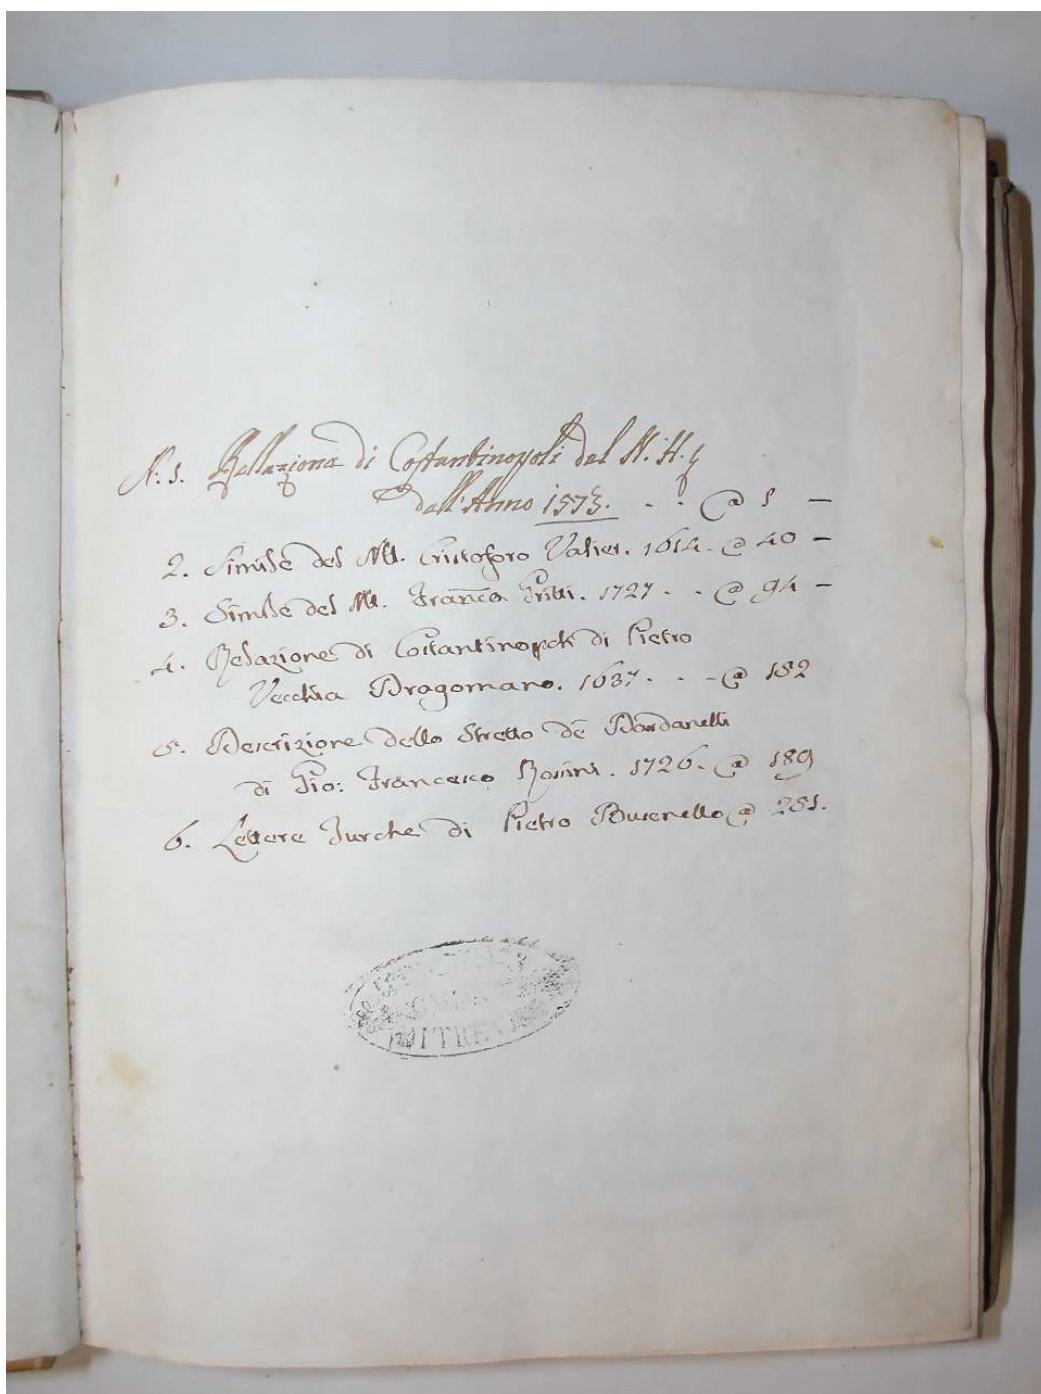 N: 1. Rellazione di Costantinopoli del N. H. 
dell'Anno 1573. . . @ 1 —
2. Simile del Cristoforo Valier. 1614. @ 40 —
3. Simile del Franco Gritti. 1727 . . @ 94 —
4. Relazione di Costantinopoli di Pietro
Vecchia Dragomano. 1637 . . - @ 182
5. Descrizione dello Stretto de Dardanelli
di Gio: Francesco Rossini. 1726. @ 189
6. Lettere Turche di Pietro Busenello @ 251.
DI TREVISO